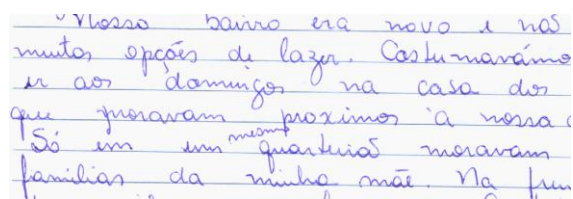 Nosso bairro era novo e nos
muitas opções de lazer. Costumavámo
ir aos domingos na casa dos
que moravam proximos à nossa
Só em um mesmo quarteirão moravam
familias da minha mãe. Na